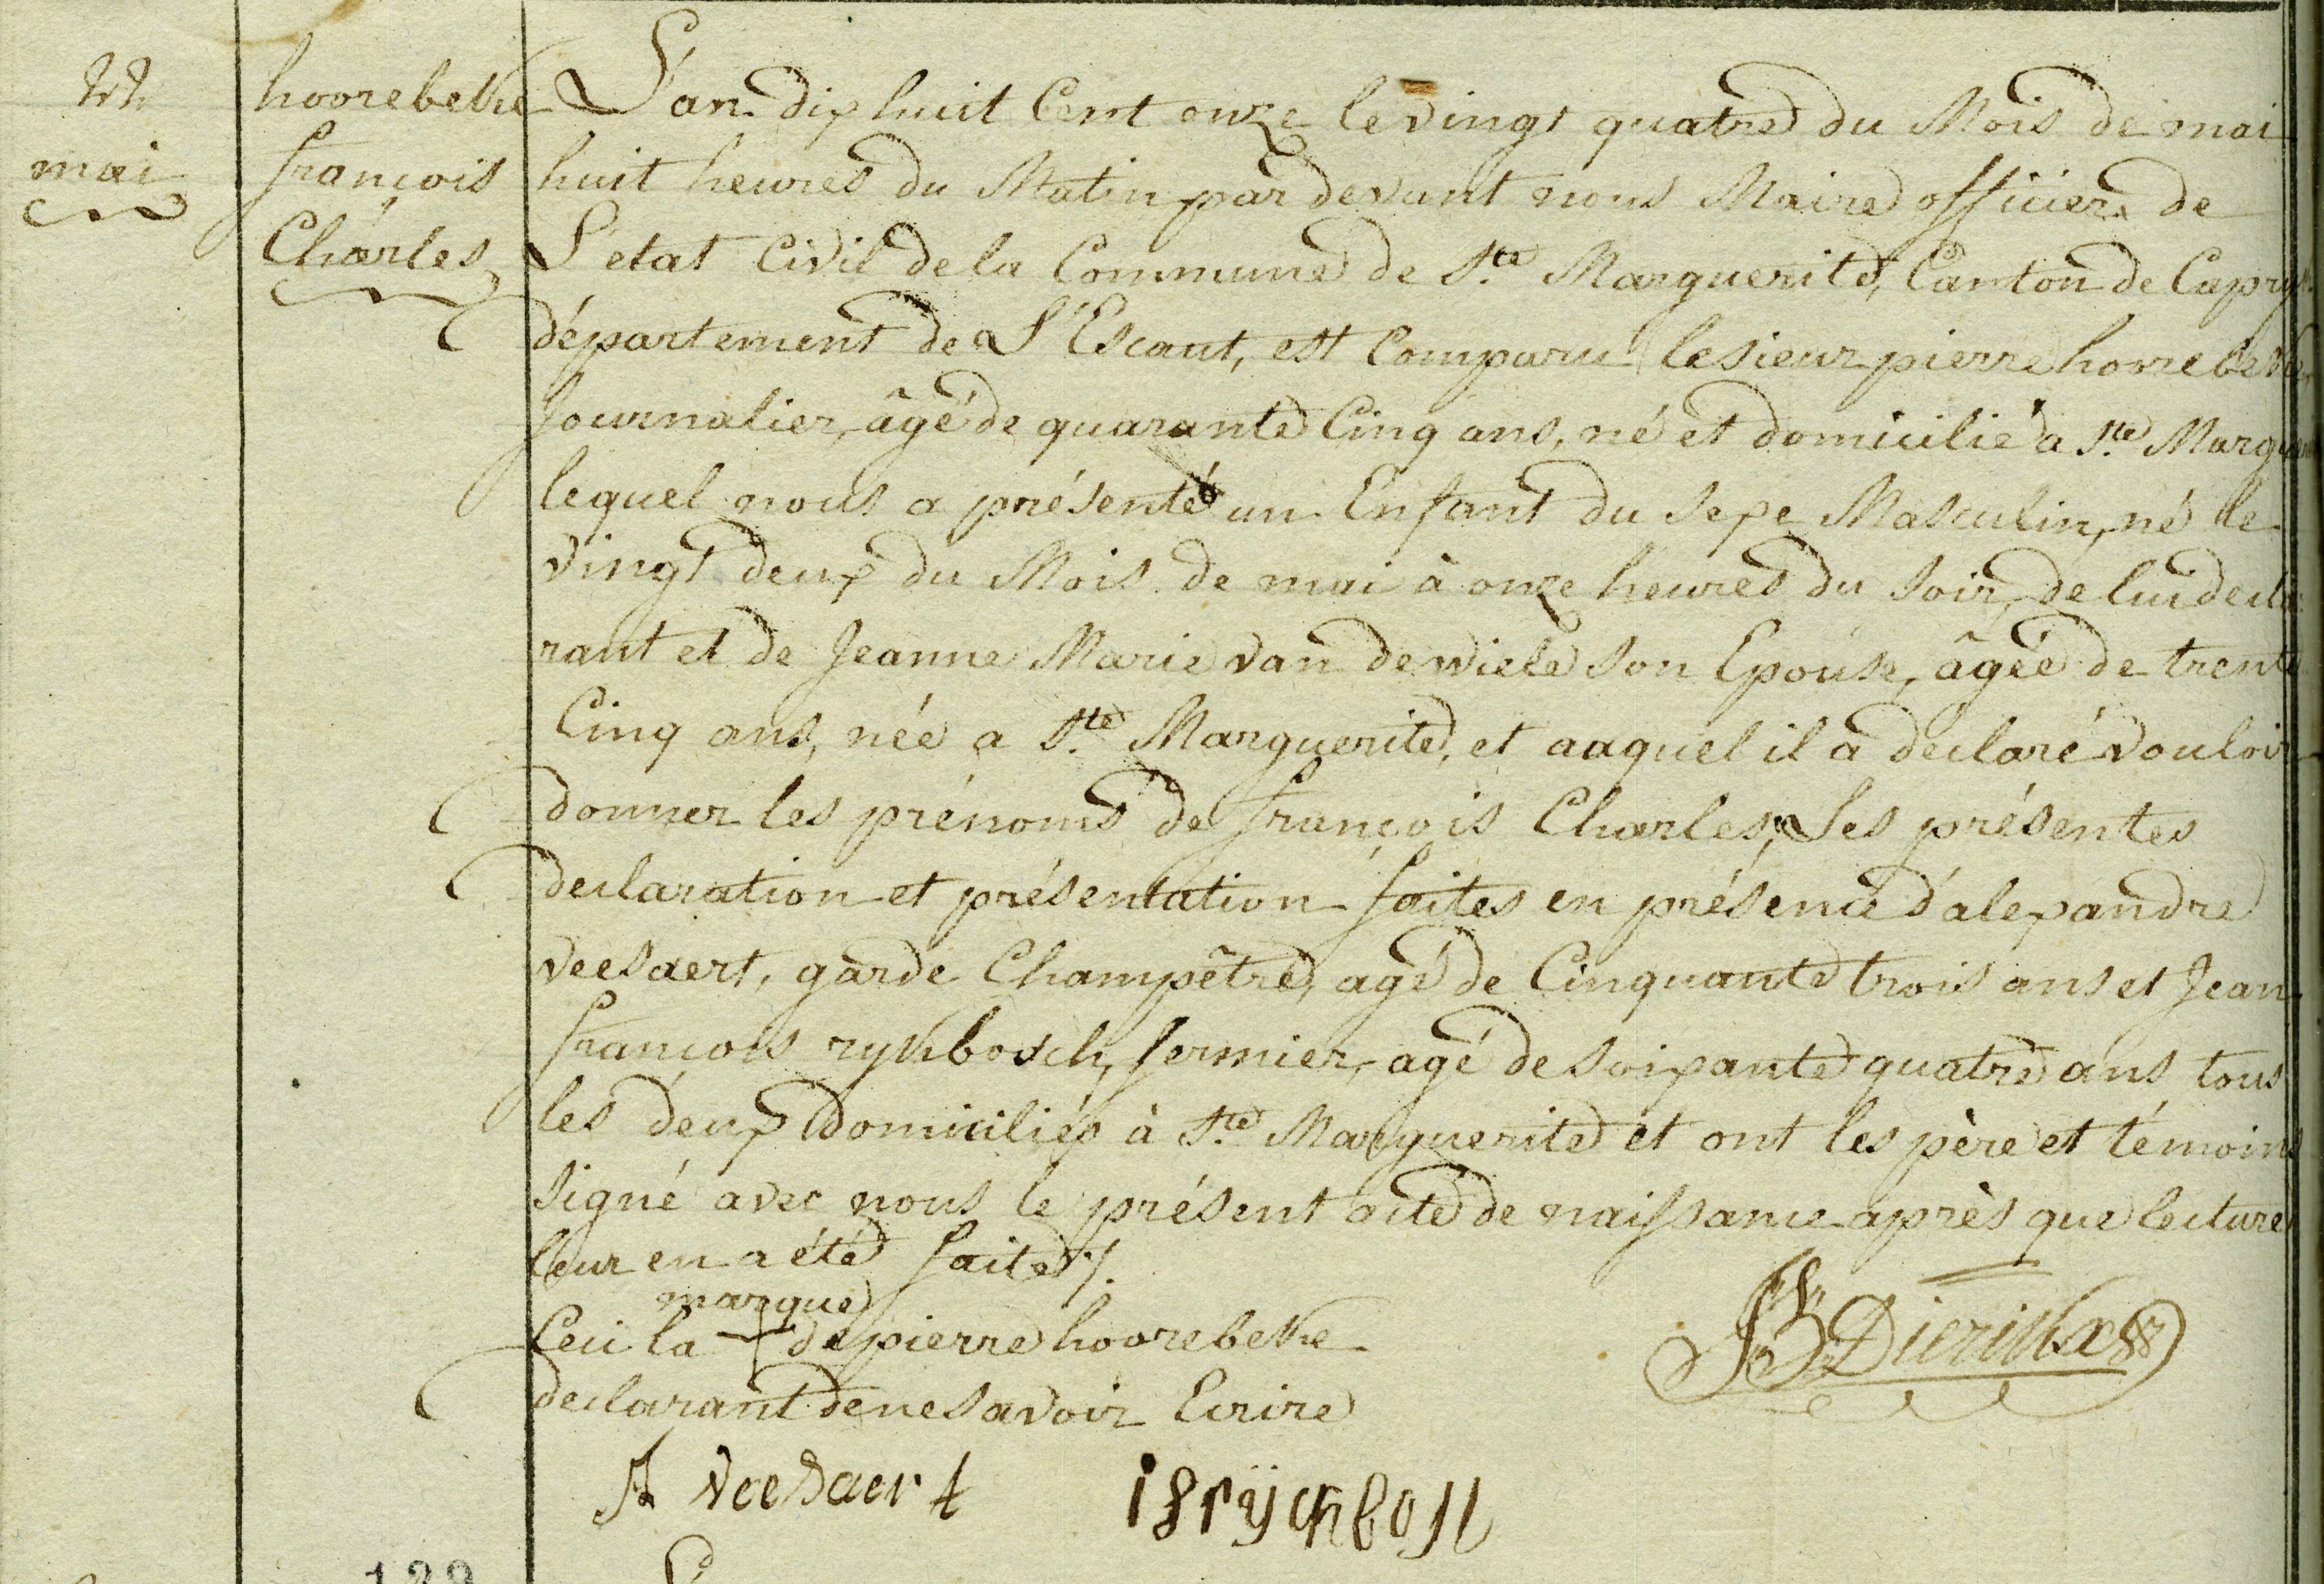 22
mai
hoorebeke
françois
Charles
L'an dix huit Cent onze le vingt quatre du Mois de mai
huit heures du Matin par devant nous Maire officier de
L'etat Civil de la Commune de Ste Marguerite, Canton de Capryk
département de L'Escaut, est Comparu le sieur pierre horrebeke
Journalier, âgé de quarante Cinq ans, né et domicilié a Ste Margue
lequel nous a présenté un Enfant du Sexe Masculin, né le
vingt deux du Mois de mai à onze heures du Soir, de lui decla
rant et de Jeanne Marie van de wiele Son Epouse, âgée de trente
Cinq ans, née a Ste Marguerite, et auquel il a déclaré vouloir
donner les prénoms de françois Charles, Les présentes
declaration et présentation faites en présence d'alexandre
veesaert, garde Champêtre, agé de Cinquante trois ans et Jean
françois rykbosch, fermier, agé de Soixante quatre ans, tous
les deux domiciliés à Ste Marguerite et ont les père et témoins
Signé avec nous le présent acte de naissance après que lecture
leur en a été faite ./.
marque
Ceci la + de pierre hoorebeke
declarant de ne Savoir Ecrire
JB Dierickx
A veesaert
i f rÿckbosch
129